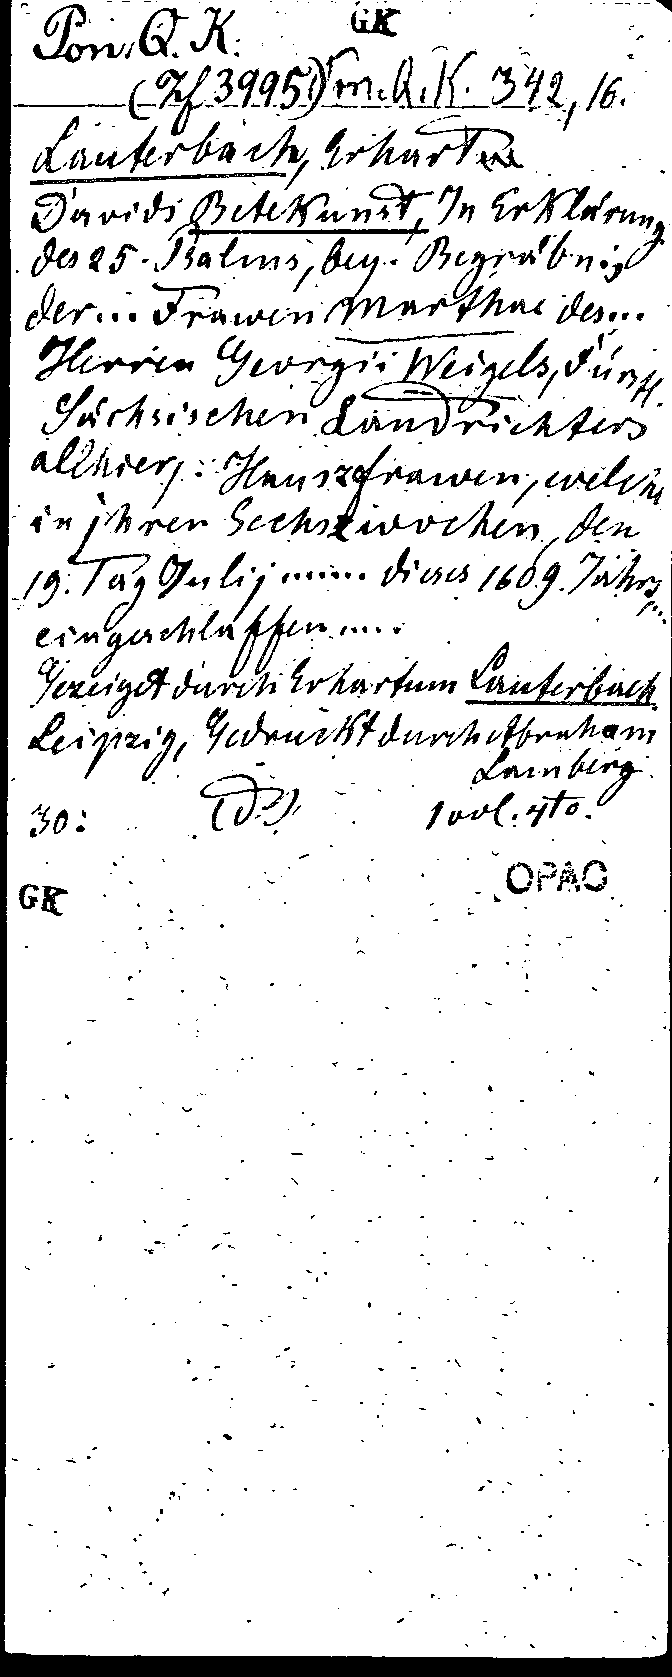 GK
Pon. Q. K.
(Zf 3995) Pon. Q. K. 342, 16.
Lauterbach, Erhart
Davids Betekunst, In Erklärung
des 25. Psalms, bey. Begräbnis
der... Frawen Marthae des...
Herren Georgii Weigels, Fürstl.
Sächsischen Landrichters
allhier: Hauszfrawen, welche
in jhren Sechszwochen, den
19. Tag Julij ..... dieses 1609. Jahrs
eingeschlaffen ....
Gezeiget durch Erhartum Lauterbach.
Leipzig, Gedruckt durch Abraham
Lamberg
30: 1 vol. 4to.
OPAO
GK